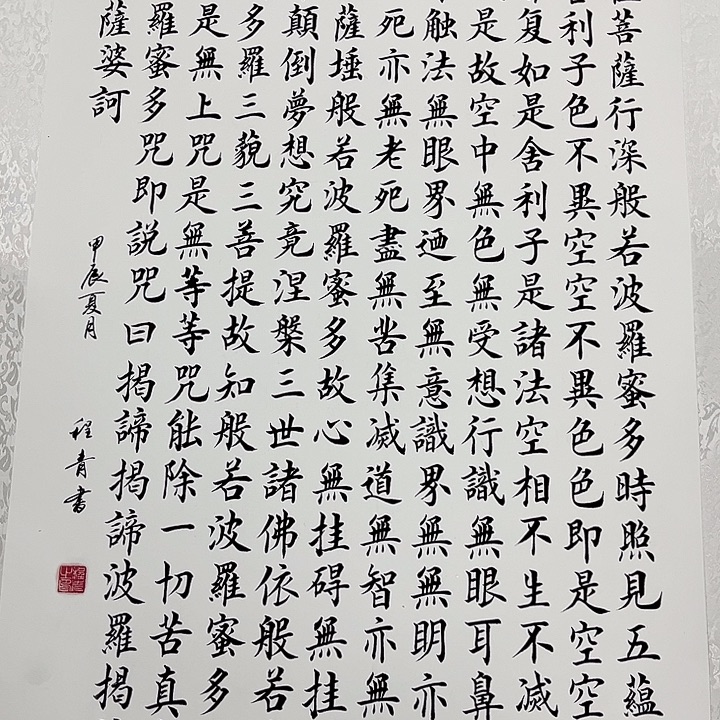 菩薩行深般若波羅蜜多時照見五蘊
利子色不異空空不異色色即是空空
复如是舍利子是諸法空相不生不滅
是故空中無色無受想行識無眼耳鼻
触法無眼界迺至無意識界無無明亦
死亦無老死盡無苦集滅道無智亦無
薩埵般若波羅蜜多故心無挂碍無挂
顛倒夢想究竟涅槃三世諸佛依般若
多羅三藐三菩提故知般若波羅蜜多
是無上咒是無等等咒能除一切苦真
羅蜜多咒即說咒曰揭諦揭諦波羅揭
薩婆訶
甲辰夏月
程青書